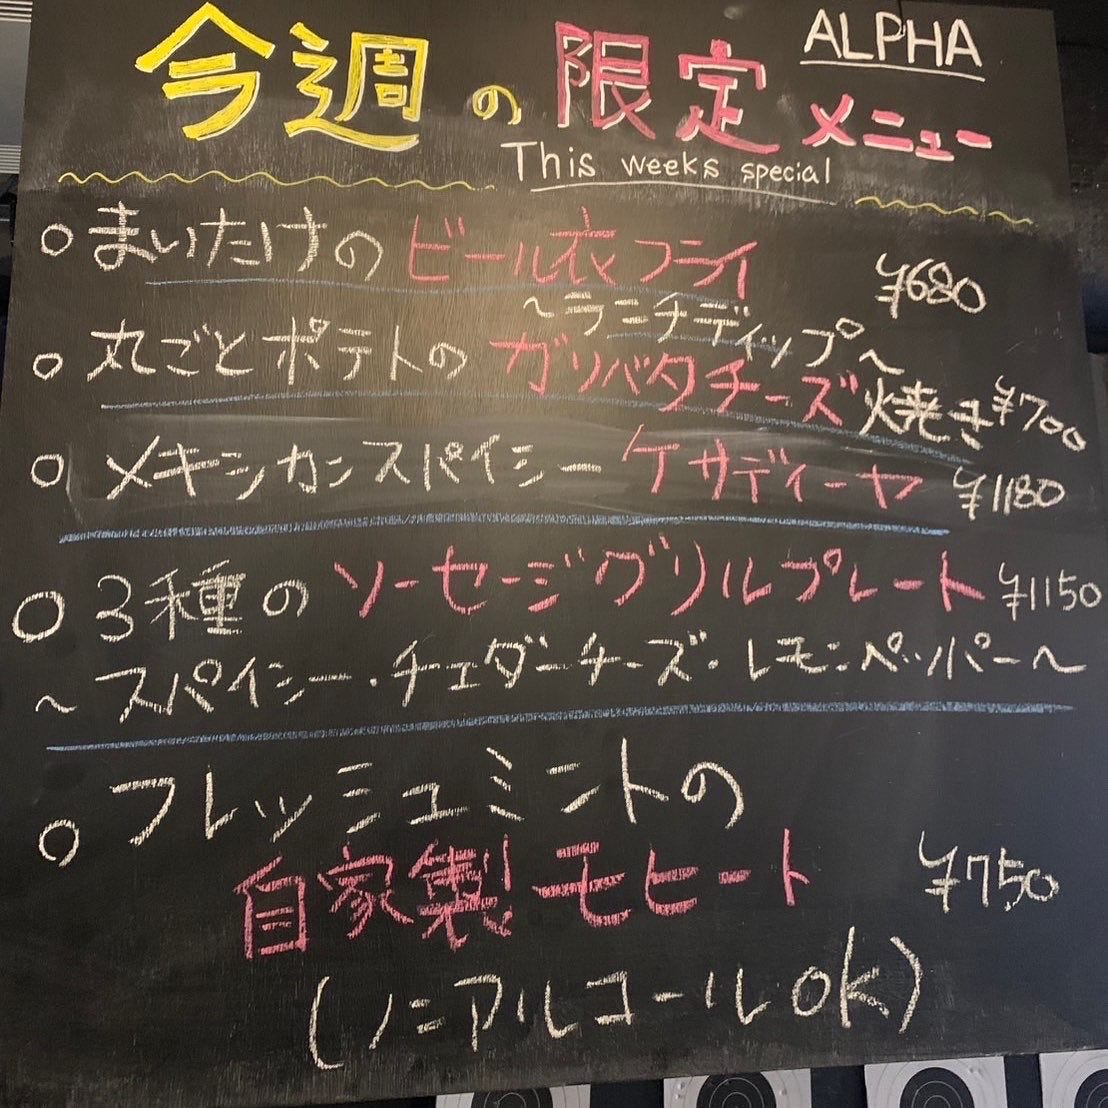 ALPHA
今週の限定メニュー
This weeks special
○まいたけのビール衣フライ ¥680
~ランチディップ~
○丸ごとポテトのガリバタチーズ焼き ¥700
○メキシカンスパイシーケサディーヤ ¥1180
○3種のソーセージグリルプレート ¥1150
~スパイシー・チェダーチーズ・レモンペッパー~
○フレッシュミントの
自家製モヒート ¥750
(ノンアルコールOK)